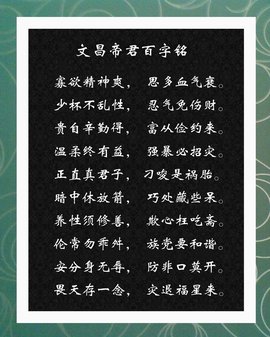 文昌帝君百字铭
寡欲精神爽， 思多血气衰。
少杯不乱性， 忍气免伤财。
贵自辛勤得， 富从俭约来。
温柔终有益， 强暴必招灾。
正直真君子， 刁唆是祸胎。
暗中休放箭， 巧处藏些呆。
养性须修善， 欺心枉吃斋。
伦常勿乖舛， 族党要和谐。
安分身无辱， 防非口莫开。
畏天存一念， 灾退福星来。